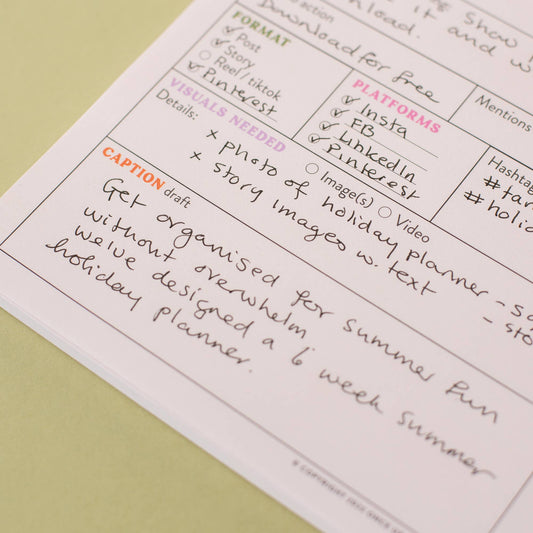 it and w
action
Download for free
Mentions
FORMAT
Post
Story
Reel/tiktok
Pinterest
PLATFORMS
Insta
FB
LinkedIn
Pinterest
VISUALS NEEDED
Details:
Image(s) Video
x photo of holiday planner
x story images w. text
CAPTION draft
Get organised for summer fun
without overwhelm
we've designed a 6 week summer
holiday planner.